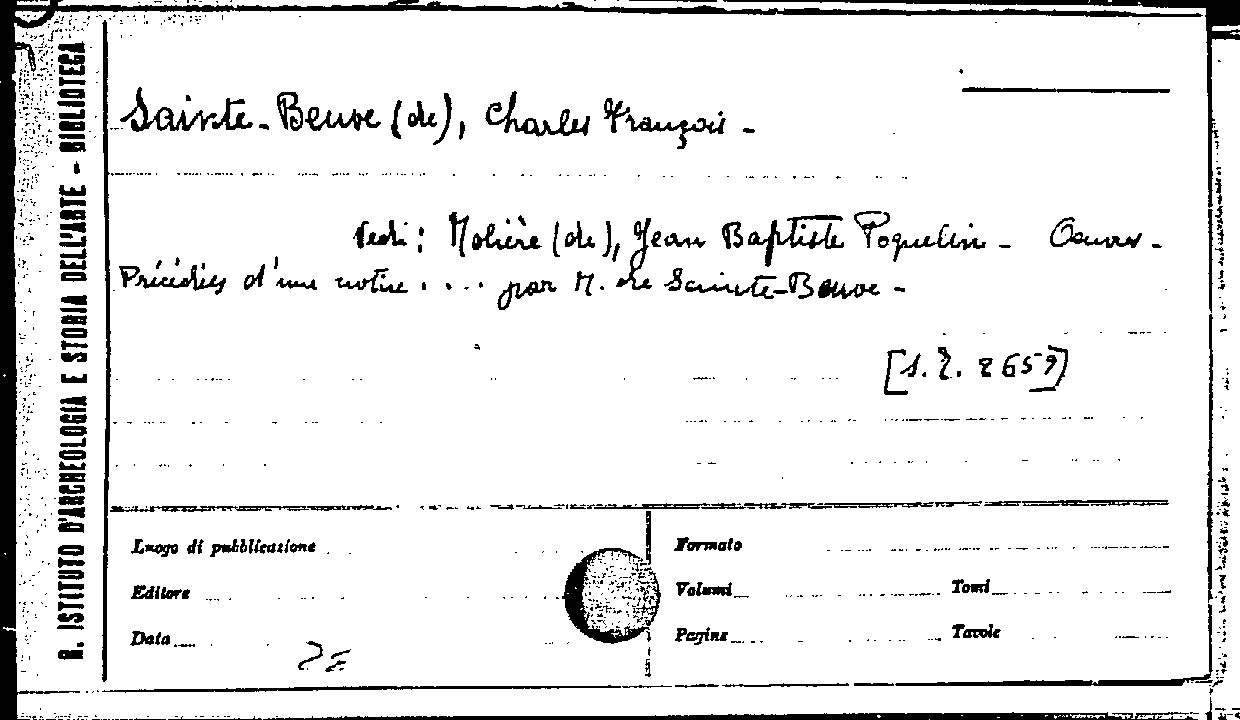 R. ISTITUTO D'ARCHEOLOGIA E STORIA DELL'ARTE - BIBLIOTECA
Sainte-Beuve (de), Charles François -
Vedi: Molière (de), Jean Baptiste Poquelin - Oeuvres -
Précédées d'une notice .... par M. de Sainte-Beuve -
Luogo di pubblicazione
Formato
Editore
Volumi
Tomi
Data
Pagine
Tavole